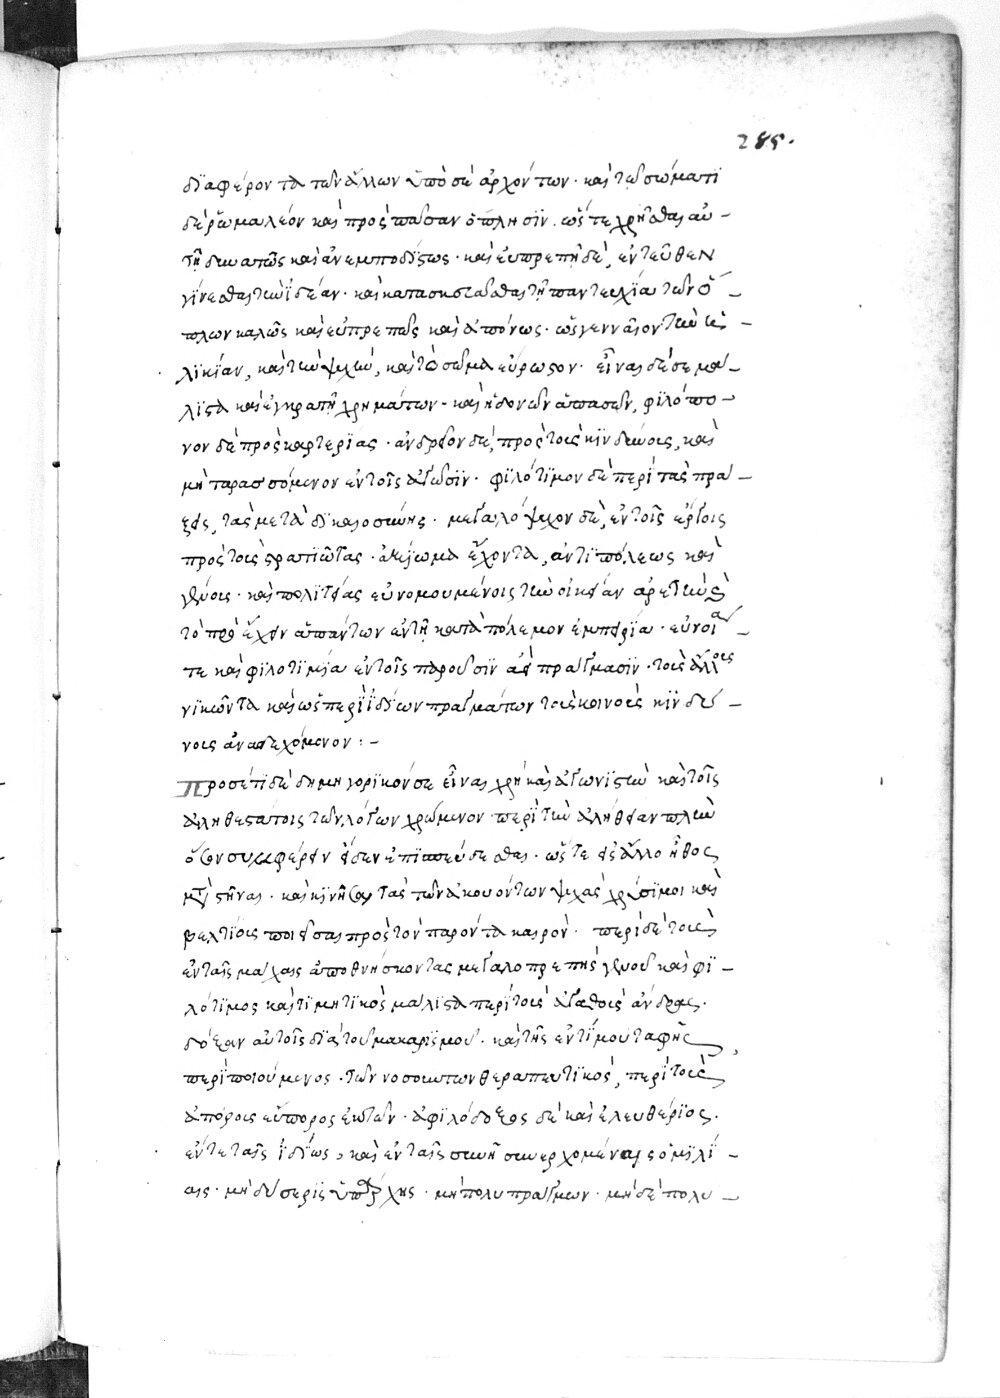 285.
διαφέροντα τῶν ἄλλων ὑπὸ σὲ ἀρχόντων· καὶ τῷ σώματι
δὲ ῥωμαλέον καὶ πρὸς πᾶσαν ὅπλησιν. ὥστε χρῆσθαι αὐ-
τῇ δυνατῶς καὶ ἀνεμποδίστως· καὶ εὐπρεπῆ δὲ, ἐντεῦθεν
γίνεσθαι τὴν ἰδέαν· καὶ κατασκευάζεσθαι τῇ παντευχίᾳ τῶν ὅ-
πλων καλῶς καὶ εὐπρεπῶς καὶ ἀπόνως· ὡς γενναῖον τὴν ἡ-
λικίαν, καὶ τὴν ψυχὴν, καὶ τὸ σῶμα εὔρωστον· εἶναι δέ σε μά-
λιστα καὶ ἐγκρατῆ χρημάτων· καὶ ἡδονῶν ἁπασῶν, φιλόπο-
νον δὲ πρὸς καρτερίας· ἀνδρεῖον δὲ, πρὸς τοὺς κινδύνους, καὶ
μὴ ταρασσόμενον ἐν τοῖς ἀγῶσιν· φιλότιμον δὲ περὶ τὰς πρά-
ξεις, τὰς μετὰ δικαιοσύνης· μεγαλόψυχον δὲ, ἐν τοῖς ἔργοις
πρὸς τοὺς στρατιώτας· ἀξίωμα ἔχοντα, ἀντὶ πόλεως καὶ
γένους· καὶ πολιτείας εὐνομουμένοις τὴν οἰκείαν ἀρετὴν
τὸ πρὸ ἔχειν ἁπάντων ἐν τῇ κατὰ πόλεμον ἐμπειρίᾳ· εὐνοίᾳ
τε καὶ φιλοτιμίᾳ ἐν τοῖς παροῦσιν ἀεὶ πράγμασιν· τοὺς ἄλλους
νικῶντα καὶ ὡς περὶ ἰδίων πραγμάτων τοὺς κοινοὺς κινδύ-
νους ἀναδεχόμενον :-
Προσέτι δὲ δημηγορικόν σε εἶναι χρὴ καὶ ἀγωνιστὴν καὶ τοῖς
ἀληθεστάτοις τῶν λόγων χρώμενον περὶ τὴν ἀλήθειαν πλὴν
ὅσον συμφέρειν
βελτίους ποιῆσαι πρὸς τὸν παρόντα καιρόν· περὶ δὲ τοὺς
ἐν ταῖς μάχαις ἀποθνήσκοντας μεγαλοπρεπὴς γένου καὶ φι-
λότιμος καὶ τιμητικὸς μάλιστα περὶ τοὺς ἀγαθοὺς ἄνδρας.
δόξαν αὐτοῖς διὰ τοῦ μακαρισμοῦ· καὶ τῆς ἐντίμου ταφῆς,
περιποιούμενος· τῶν νοσούντων θεραπευτικὸς, περὶ τοὺς
ἀπόρους εὔπορος ἐκ τῶν· ἀφιλόδοξος δὲ καὶ ἐλευθέριος·
ἔν τε ταῖς ἰδίως, καὶ ἐν ταῖς κοινῇ συνερχομέναις ὁμιλί-
αις· μὴ δύσερις ὑπάρχῃς· μὴ πολυπράγμων· μὴ δὲ πολυ-